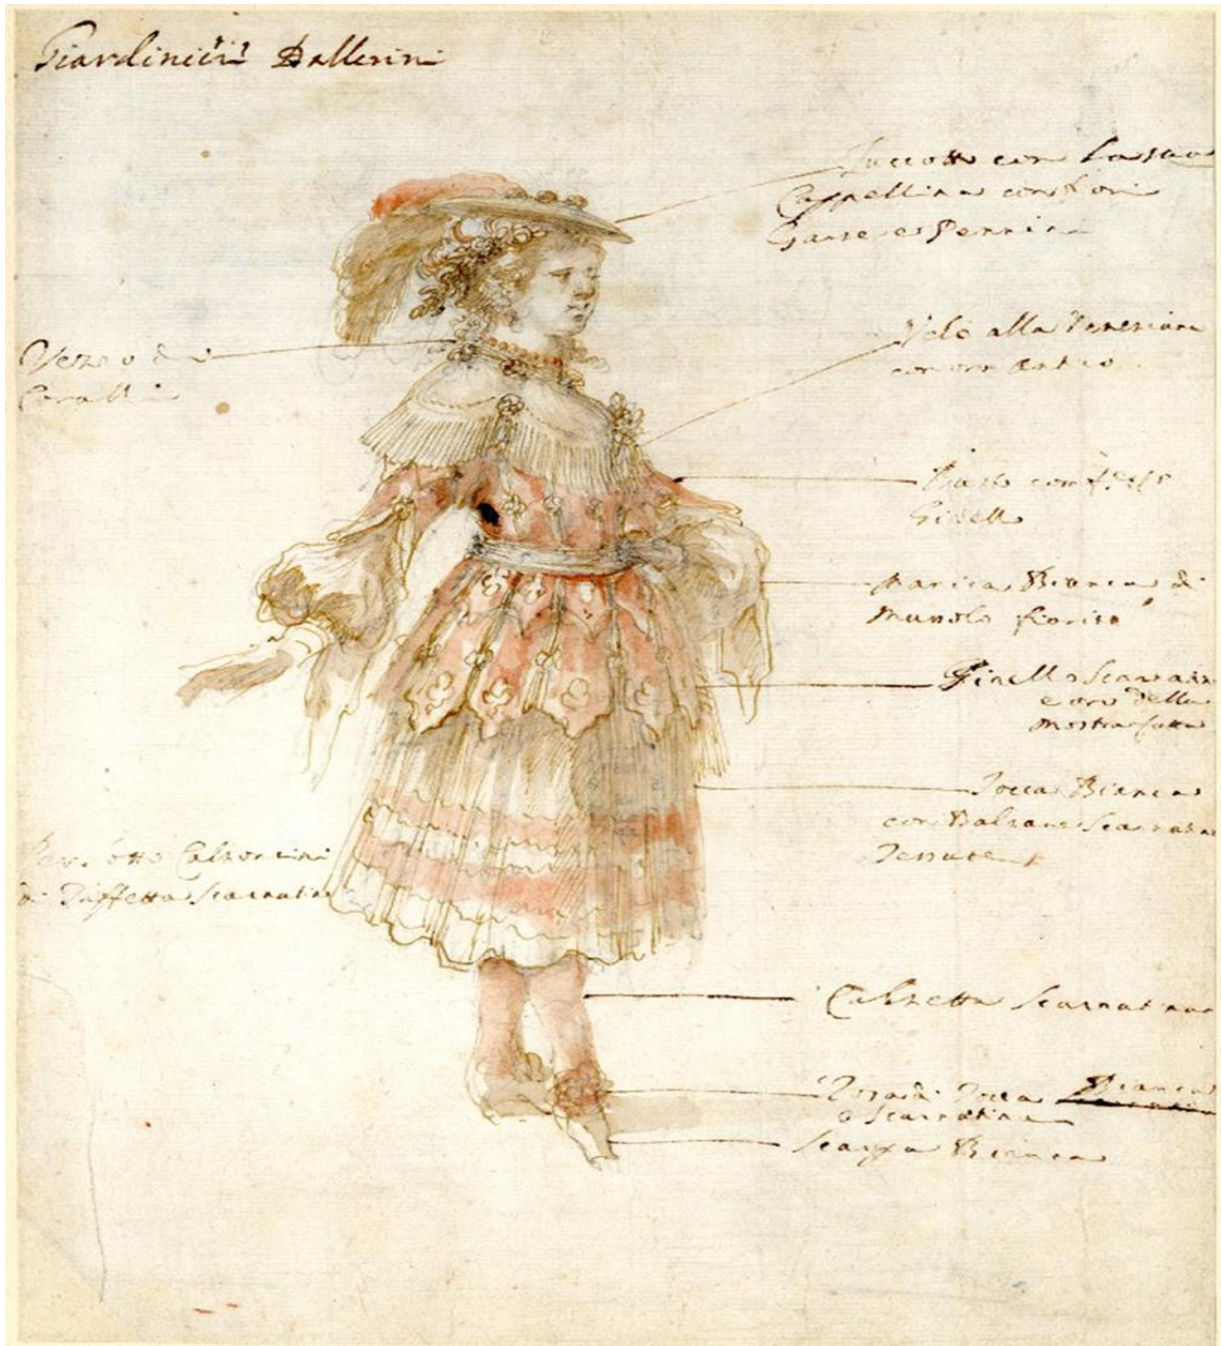 Giardinieri Ballerini
Zuccotto con la sua
Cappellina con fiori
Garze e Pennine
Velo alla Veneziana
con oro Antico
Vezzo di
Coralli
Busto con
Girelli
Manica Bianca di
Mussolo fiorito
Girello Scarnatino
e oro della
mostra fatta
Tocca Bianca
con Balzane Scarnatine
Tessute
Per sotto Calzoncini
di Taffetta Scarnatino
Calzetta Scarnatina
Rosa di Tocca Bianca
o Scarnatina
Scarpa Bianca